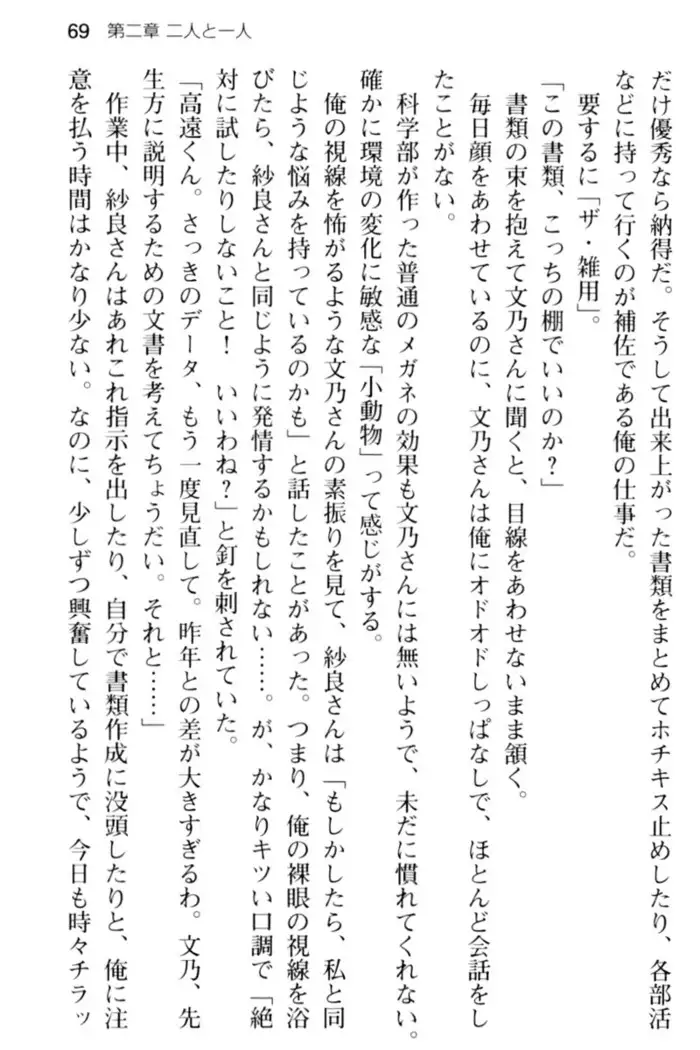 69 第二章 二人と一人
だけ優秀なら納得だ。そうして出来上がった書類をまとめてホチキス止めしたり、各部活
などに持って行くのが補佐である俺の仕事だ。
要するに「ザ・雑用」。
「この書類、こっちの棚でいいのか？」
書類の束を抱えて文乃さんに聞くと、目線をあわせないまま頷く。
毎日顔をあわせているのに、文乃さんは俺にオドオドしっぱなしで、ほとんど会話をし
たことがない。
科学部が作った普通のメガネの効果も文乃さんには無いようで、未だに慣れてくれない。
確かに環境の変化に敏感な「小動物」って感じがする。
俺の視線を怖がるような文乃さんの素振りを見て、紗良さんは「もしかしたら、私と同
じような悩みを持っているのかも」と話したことがあった。つまり、俺の裸眼の視線を浴
びたら、紗良さんと同じように発情するかもしれない……。が、かなりキツい口調で「絶
対に試したりしないこと！　いいわね？」と釘を刺されていた。
「高遠くん。さっきのデータ、もう一度見直して。昨年との差が大きすぎるわ。文乃、先
生方に説明するための文書を考えてちょうだい。それと……」
作業中、紗良さんはあれこれ指示を出したり、自分で書類作成に没頭したりと、俺に注
意を払う時間はかなり少ない。なのに、少しずつ興奮しているようで、今日も時々チラッ